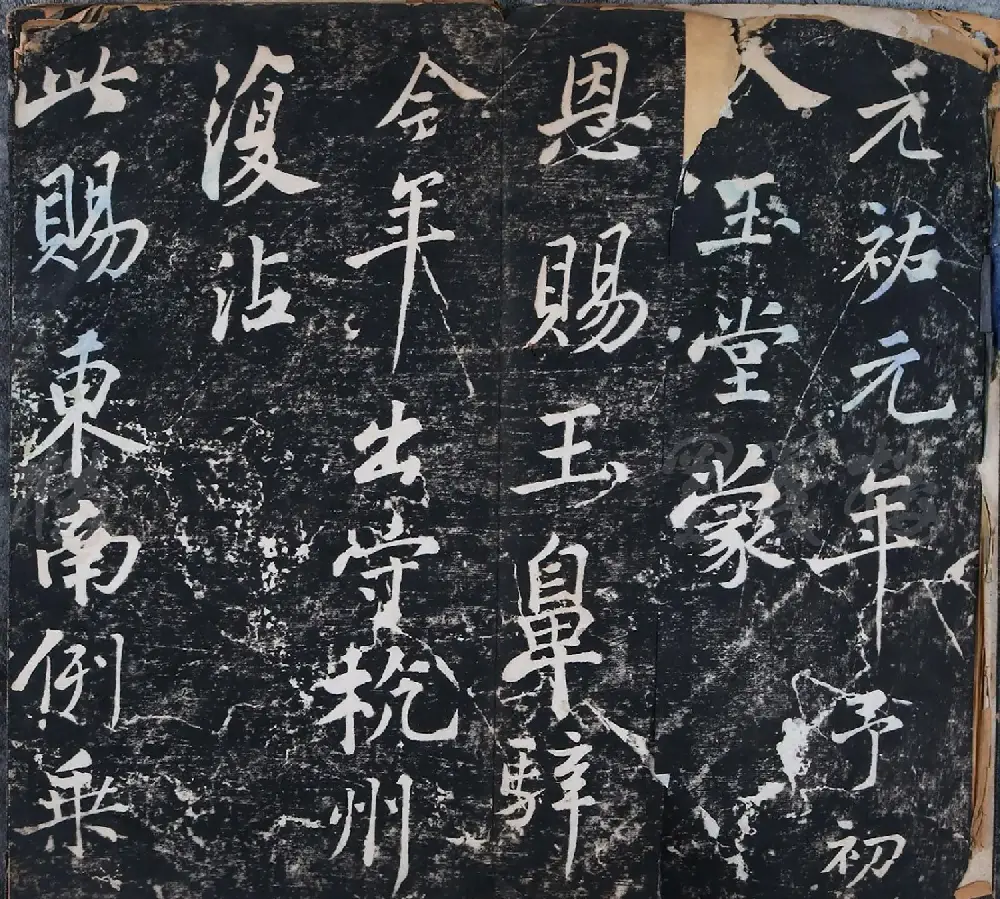 元祐元年予初
入玉堂蒙
恩賜玉鼻騂
今年出守杭州
復沾
此賜東南例乗